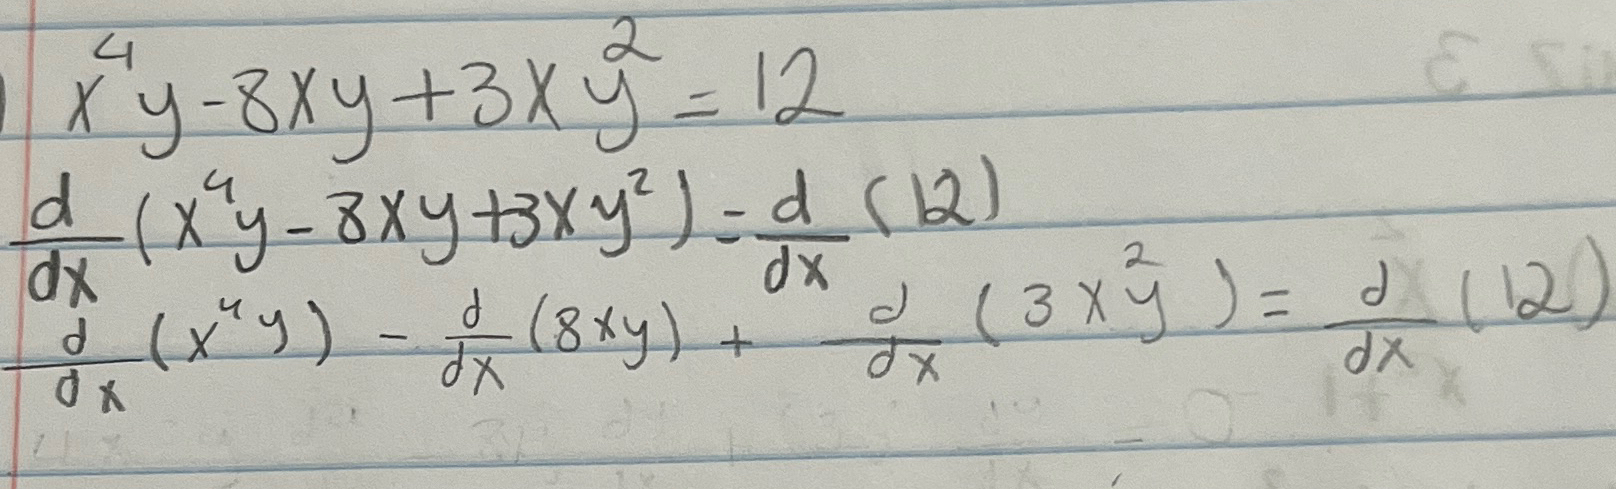 ) x⁴y - 8xy + 3xy² = 12
d/dx (x⁴y - 8xy + 3xy²) = d/dx (12)
d/dx (x⁴y) - d/dx (8xy) + d/dx (3xy²) = d/dx (12)